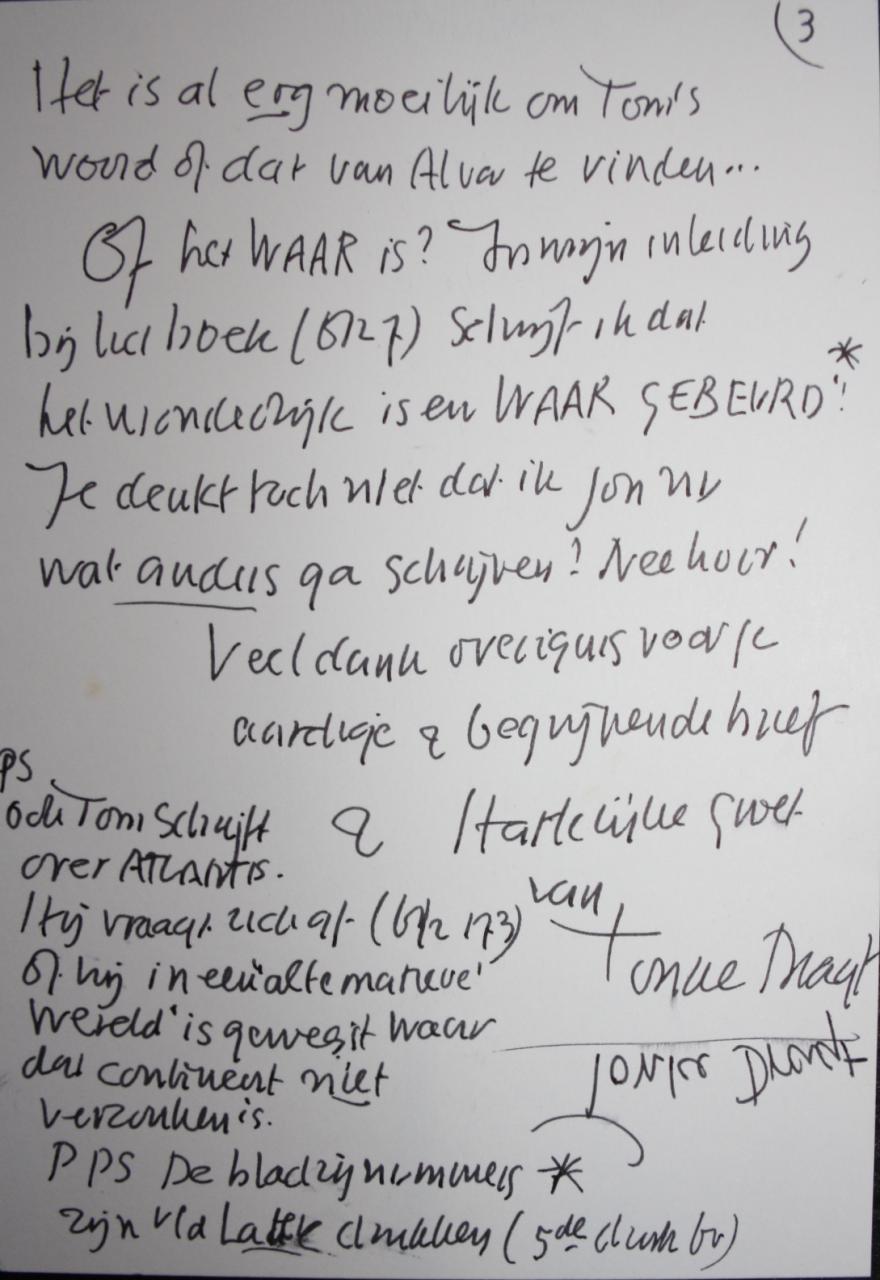 3
Het is al erg moeilijk om Tom's
woord of dat van Alva te vinden...
Of het WAAR is? In mijn inleiding
bij het boek (blz 7) schrijf ik dat
het wonderlijk is en WAAR GEBEURD"! *
Je denkt toch niet dat ik jou nu
wat anders ga schrijven? Nee hoor!
Veel dank overigens voor je
aardige & begrijpende brief
& Hartelijke groet
van
Tonke Dragt
Tonke Dragt
PS
Ook Tom Schrijft
over ATLANTIS.
Hij vraagt zich af (blz 173)
of hij in een 'alternatieve'
wereld' is geweest waar
dat continent niet
verzonken is.
PPS De bladzijnummers *
zijn v/d Latere drukken (5de druk bv)